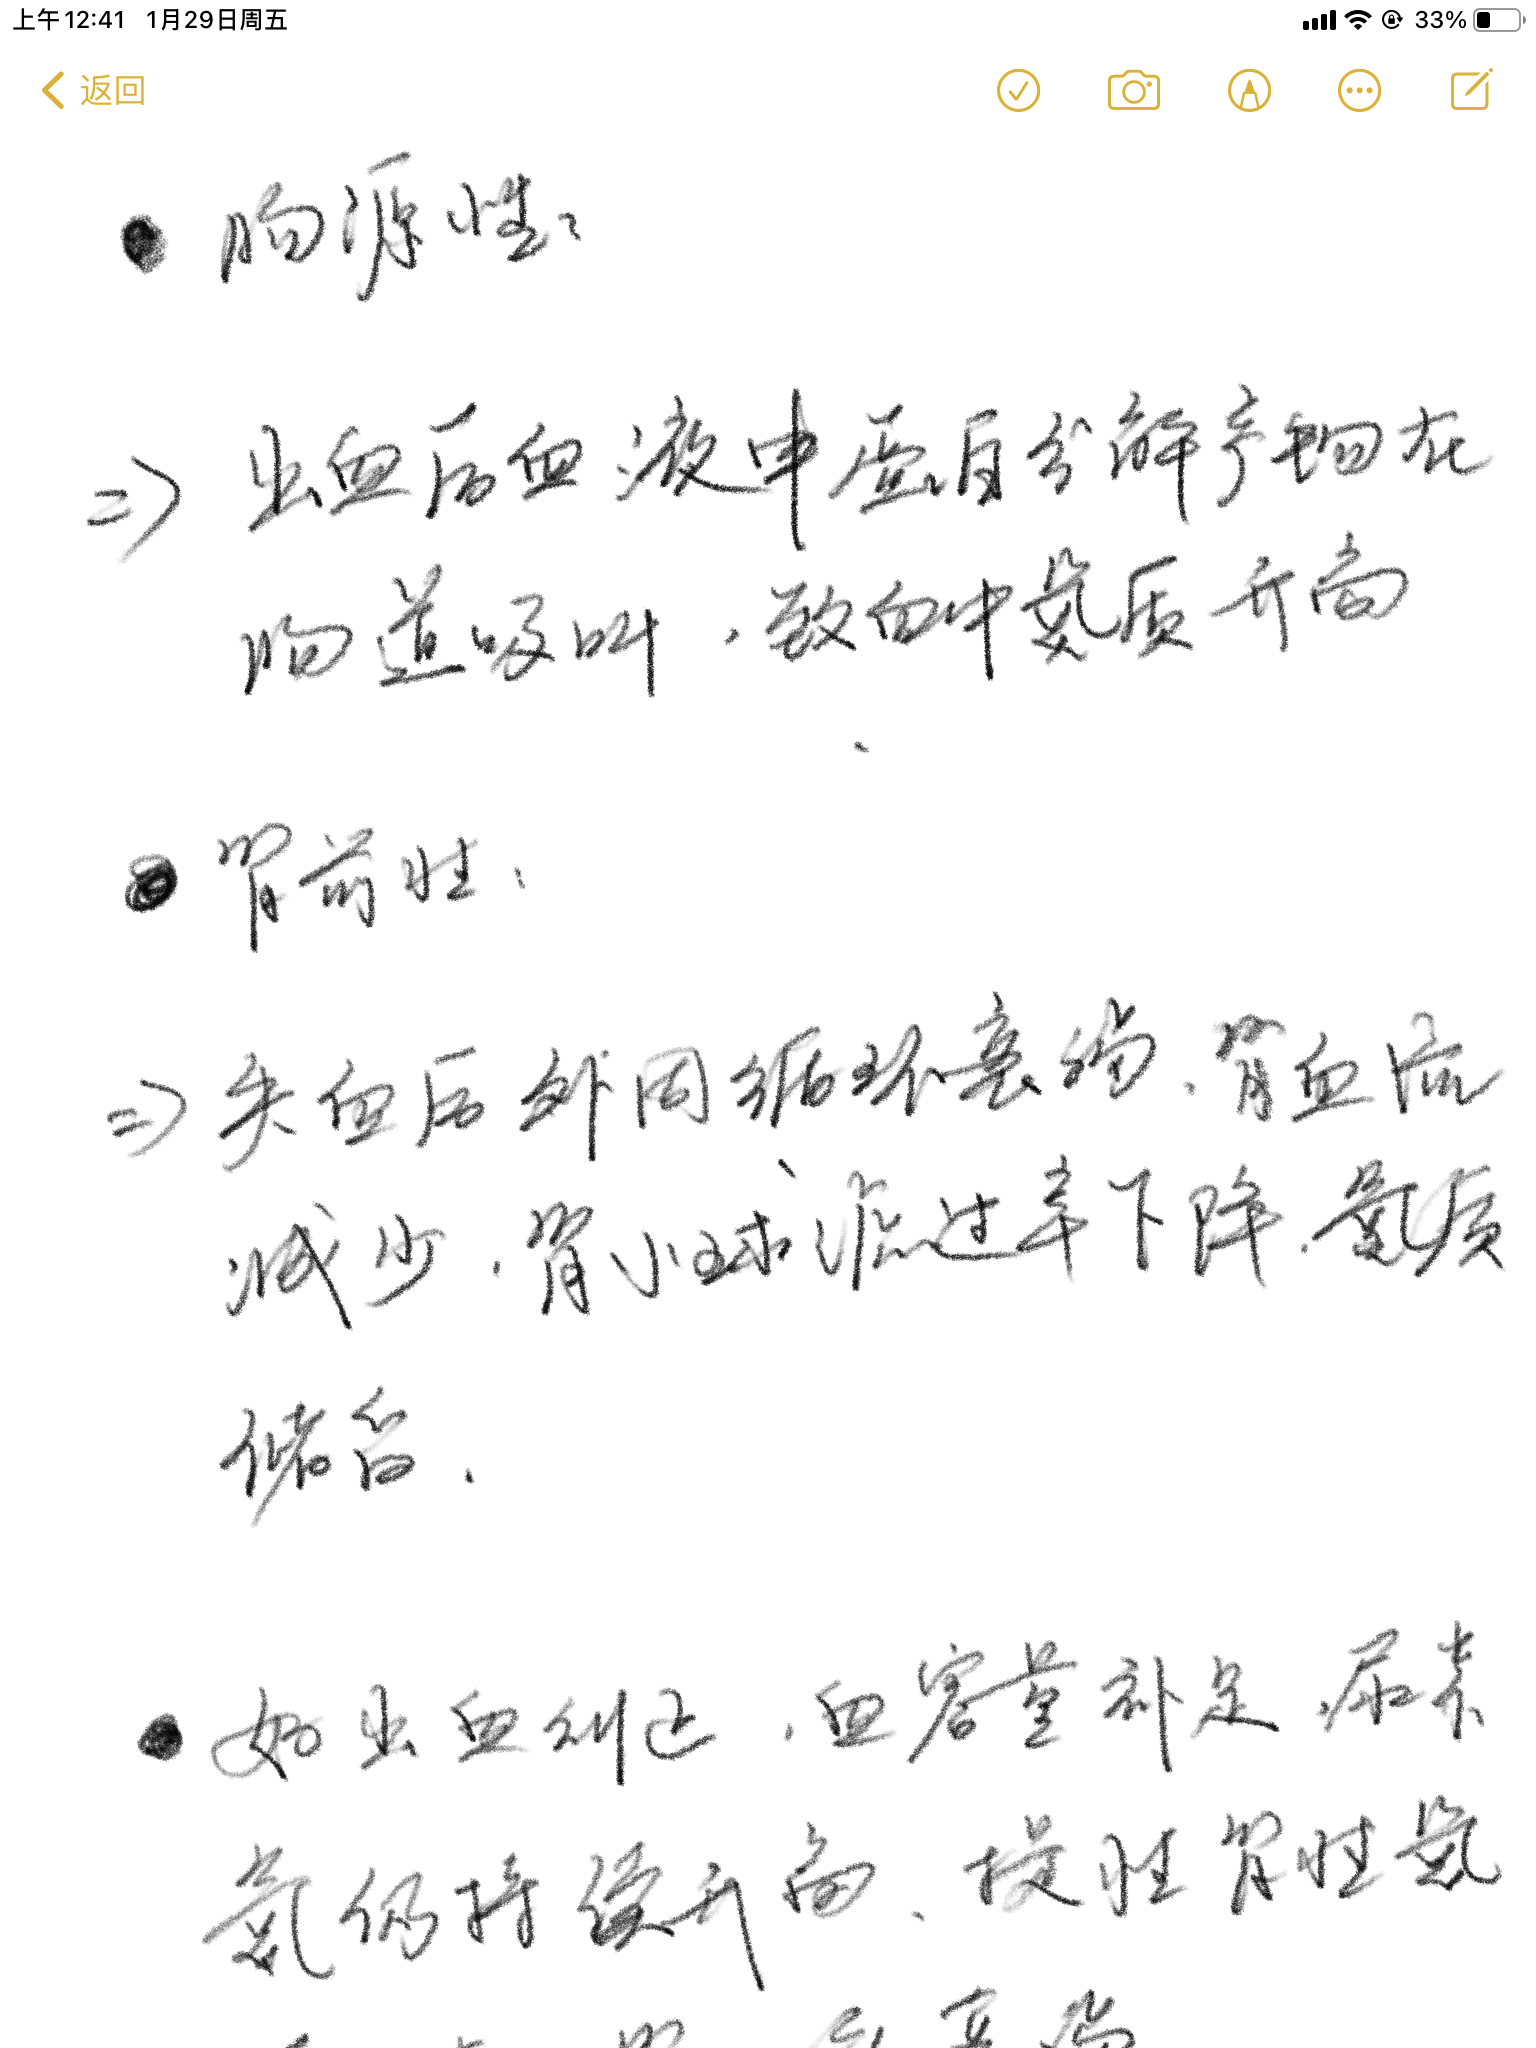 上午12:41 1月29日周五
33%
返回
肠源性:
=> 出血后血液中蛋白分解产物在
肠道吸收,致血中氮质升高
肾前性:
=> 失血后外周循环衰竭,肾血流
减少,肾小球滤过率下降,氮质
储留.
如出血纠正,血容量补足,尿素
氮仍持续升高,提性肾性氮